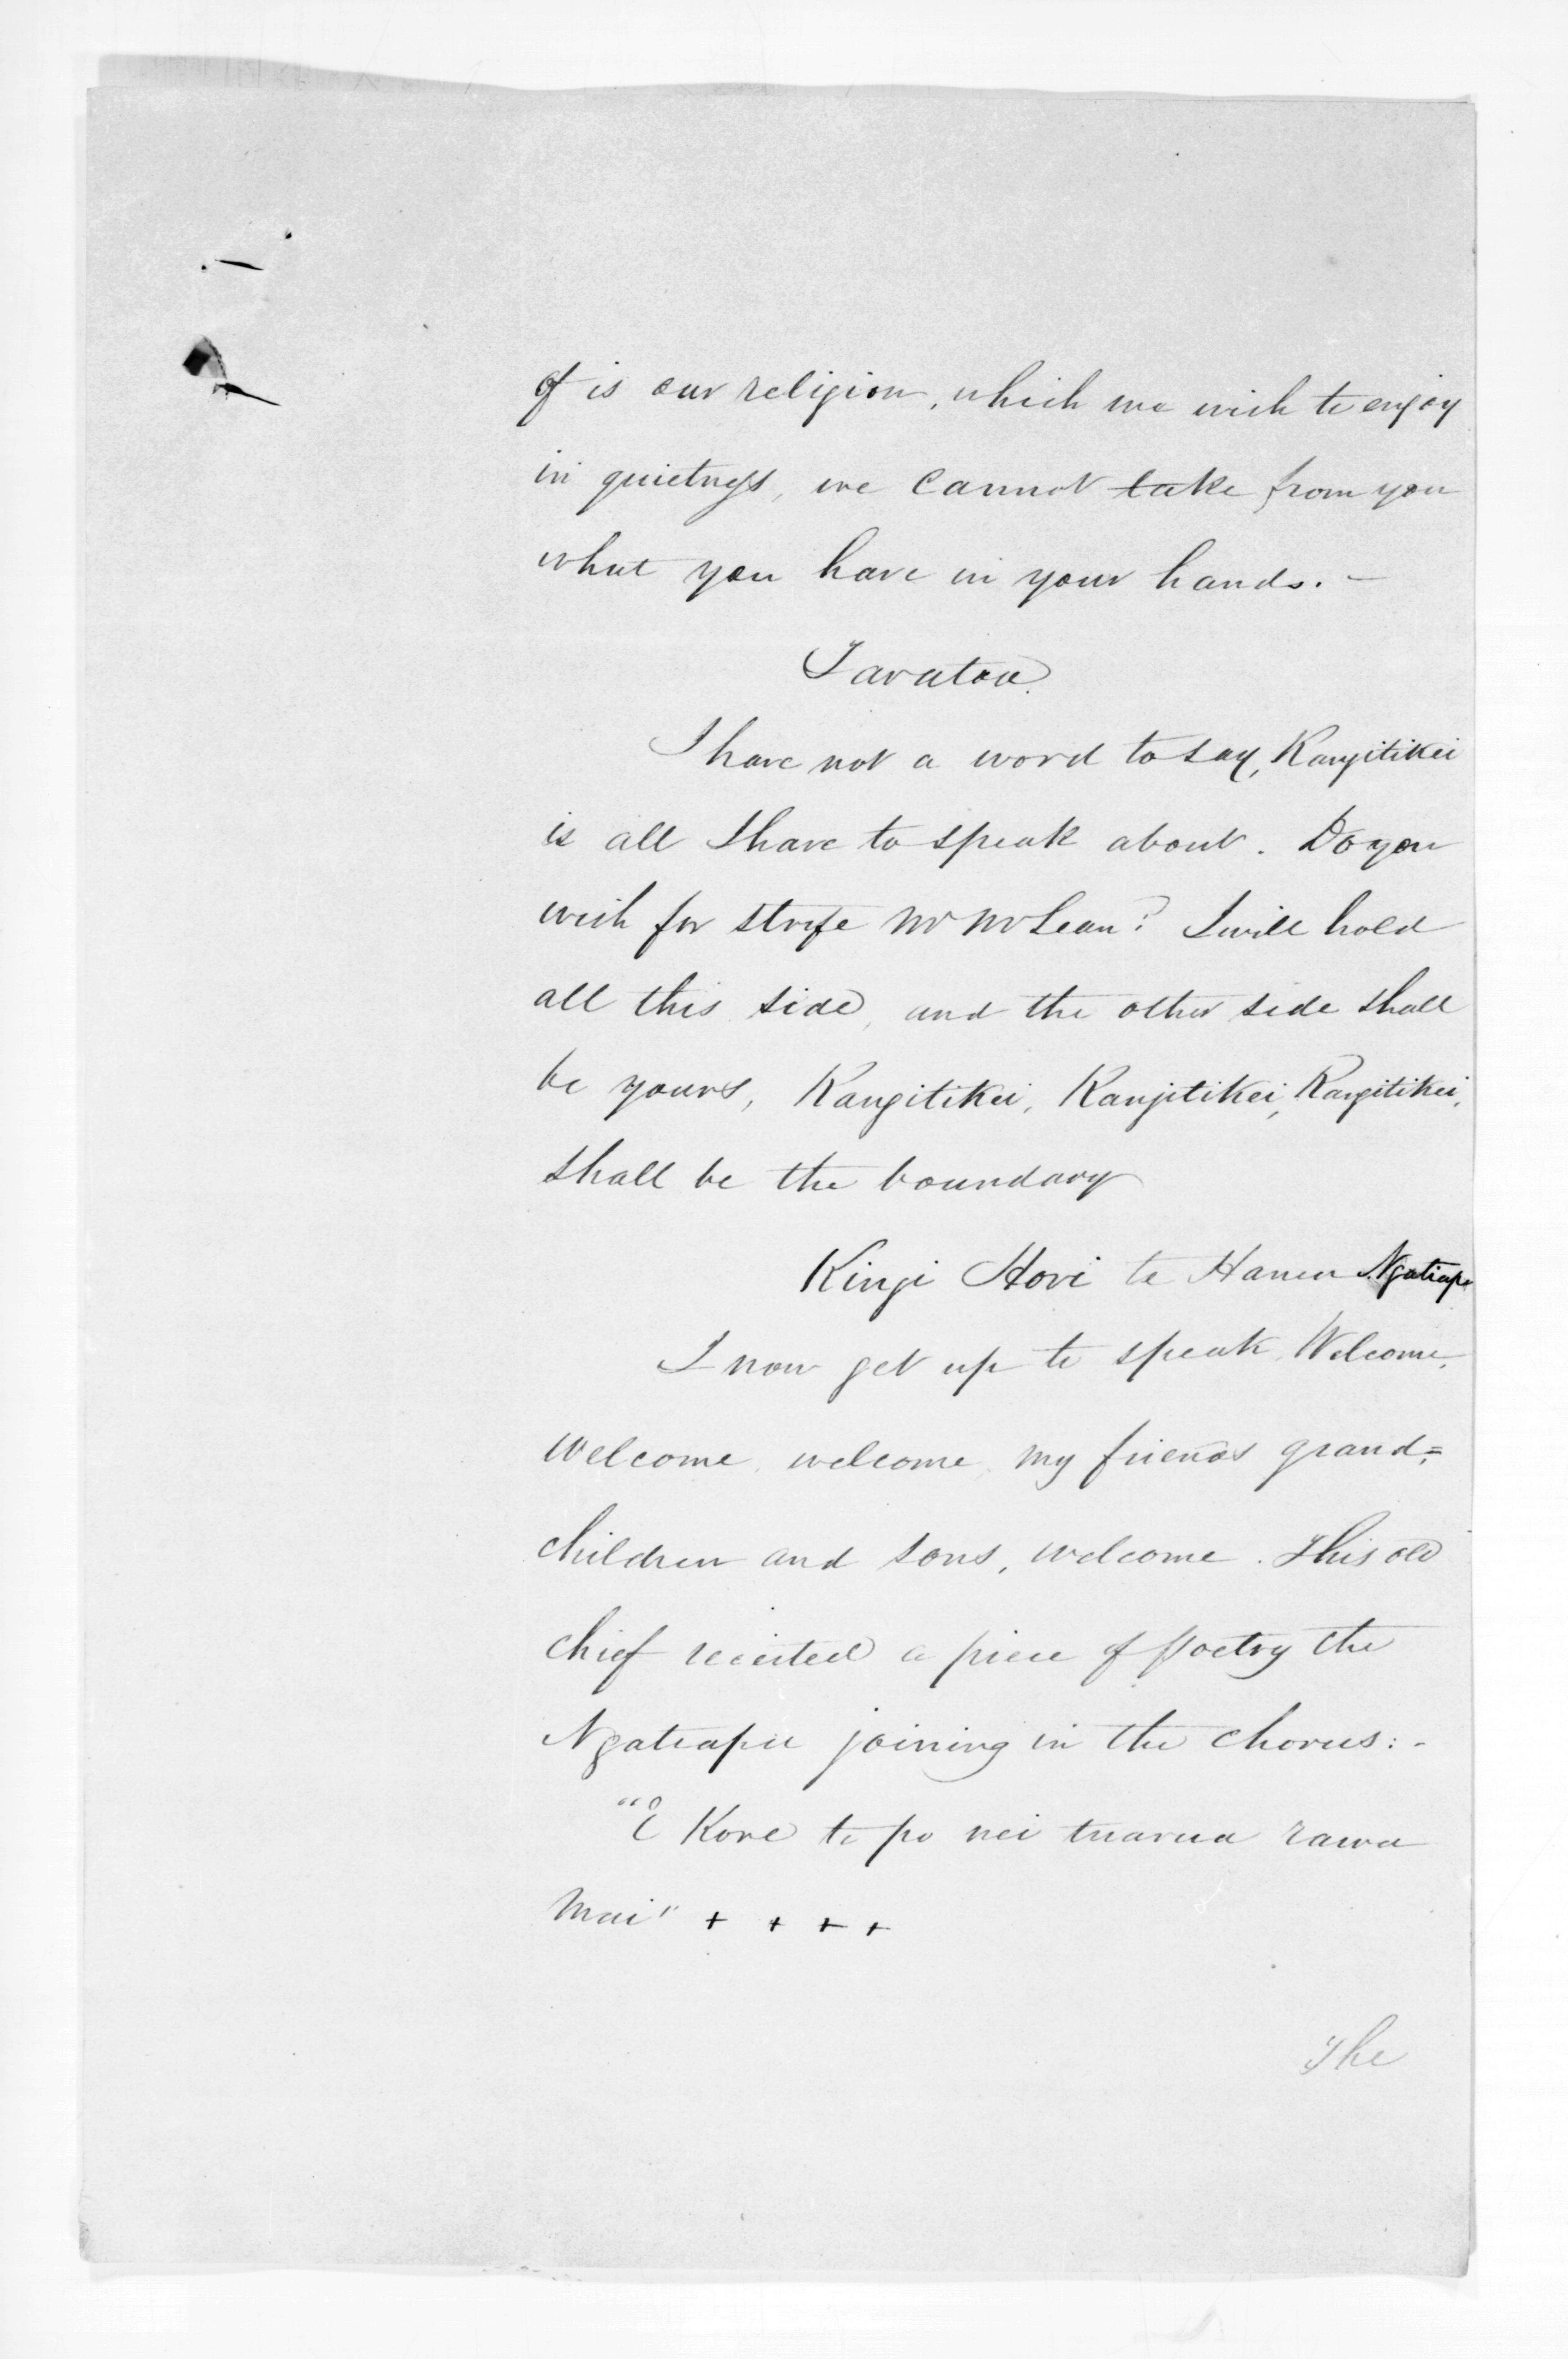 of is our religion, which we wish to enjoy
in quietness, we cannot take from you
what you have in your hands. -
Taratoa
I have not a word to say, Rangitikei
is all I have to speak about. Do you
wish for strife Mr McLean? I will hold
all this side, and the other side shall
be yours, Rangitikei, Rangitikei, Rangitikei,
shall be the boundary
Kingi Hori te Hanea Ngatiapa
I now get up to speak, Welcome,
welcome, welcome, my friends grand=
children and sons, welcome. This old
chief recited a piece of poetry the
Ngatiapa joining in the chorus: -
"E Kore te po nei tuarua rawa
mai" + + + +
The